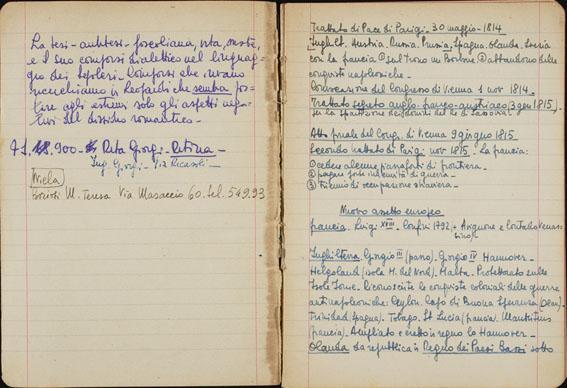 La tesi-antitesi-foscoliana, vita, morte,
e il suo comporsi dialettico nel linguag=
gio dei Sepolcri. Comporsi che invano
cercheremo in Leopardi che sembra por=
tare agli estremi solo gli aspetti nega=
tivi del dissidio romantico-
900- Rita Giorgi-
Ing. Giorgi- Via Ricasoli-
Mela
M. Teresa Via Masaccio 60. tel. 549.93
Trattato di Pace di Parigi- 30 maggio-1814
Inghilt. Austria. Russia. Prussia. Spagna. Olanda. Svezia
con la Francia ① sul trono un Borbone ② abbandono delle
conquiste napoleoniche-
Convocazione del Congresso di Vienna 1 nov 1814-
Trattato segreto anglo-franco-austriaco (3 gen 1815)-
Atto finale del Cong. di Vienna 9 giugno 1815.
Secondo trattato di Parigi nov 1815. la Francia:
① cedere alcune piazzaforti di frontiera-
② pagare forte indennità di guerra-
③ triennio di occupazione straniera-
Nuovo assetto europeo
Francia. Luigi XVIII. Confini 1792, + Avignone e Contado Venas=
sino
Inghilterra. Giorgio III (pazzo). Giorgio IV Hannover-
Helgoland (isola M. del Nord). Malta. Protettorato sulle
Isole Jonie. Riconosciute le conquiste coloniali delle guerre
antinapoleoniche: Ceylon. Capo di Buona Speranza (Olan).
Trinidad (Spagna). Tobago. St Lucia (Francia). Mauritius
(Francia). Ampliato e eretto in regno lo Hannover-
Olanda da repubblica in Regno dei Paesi Bassi sotto